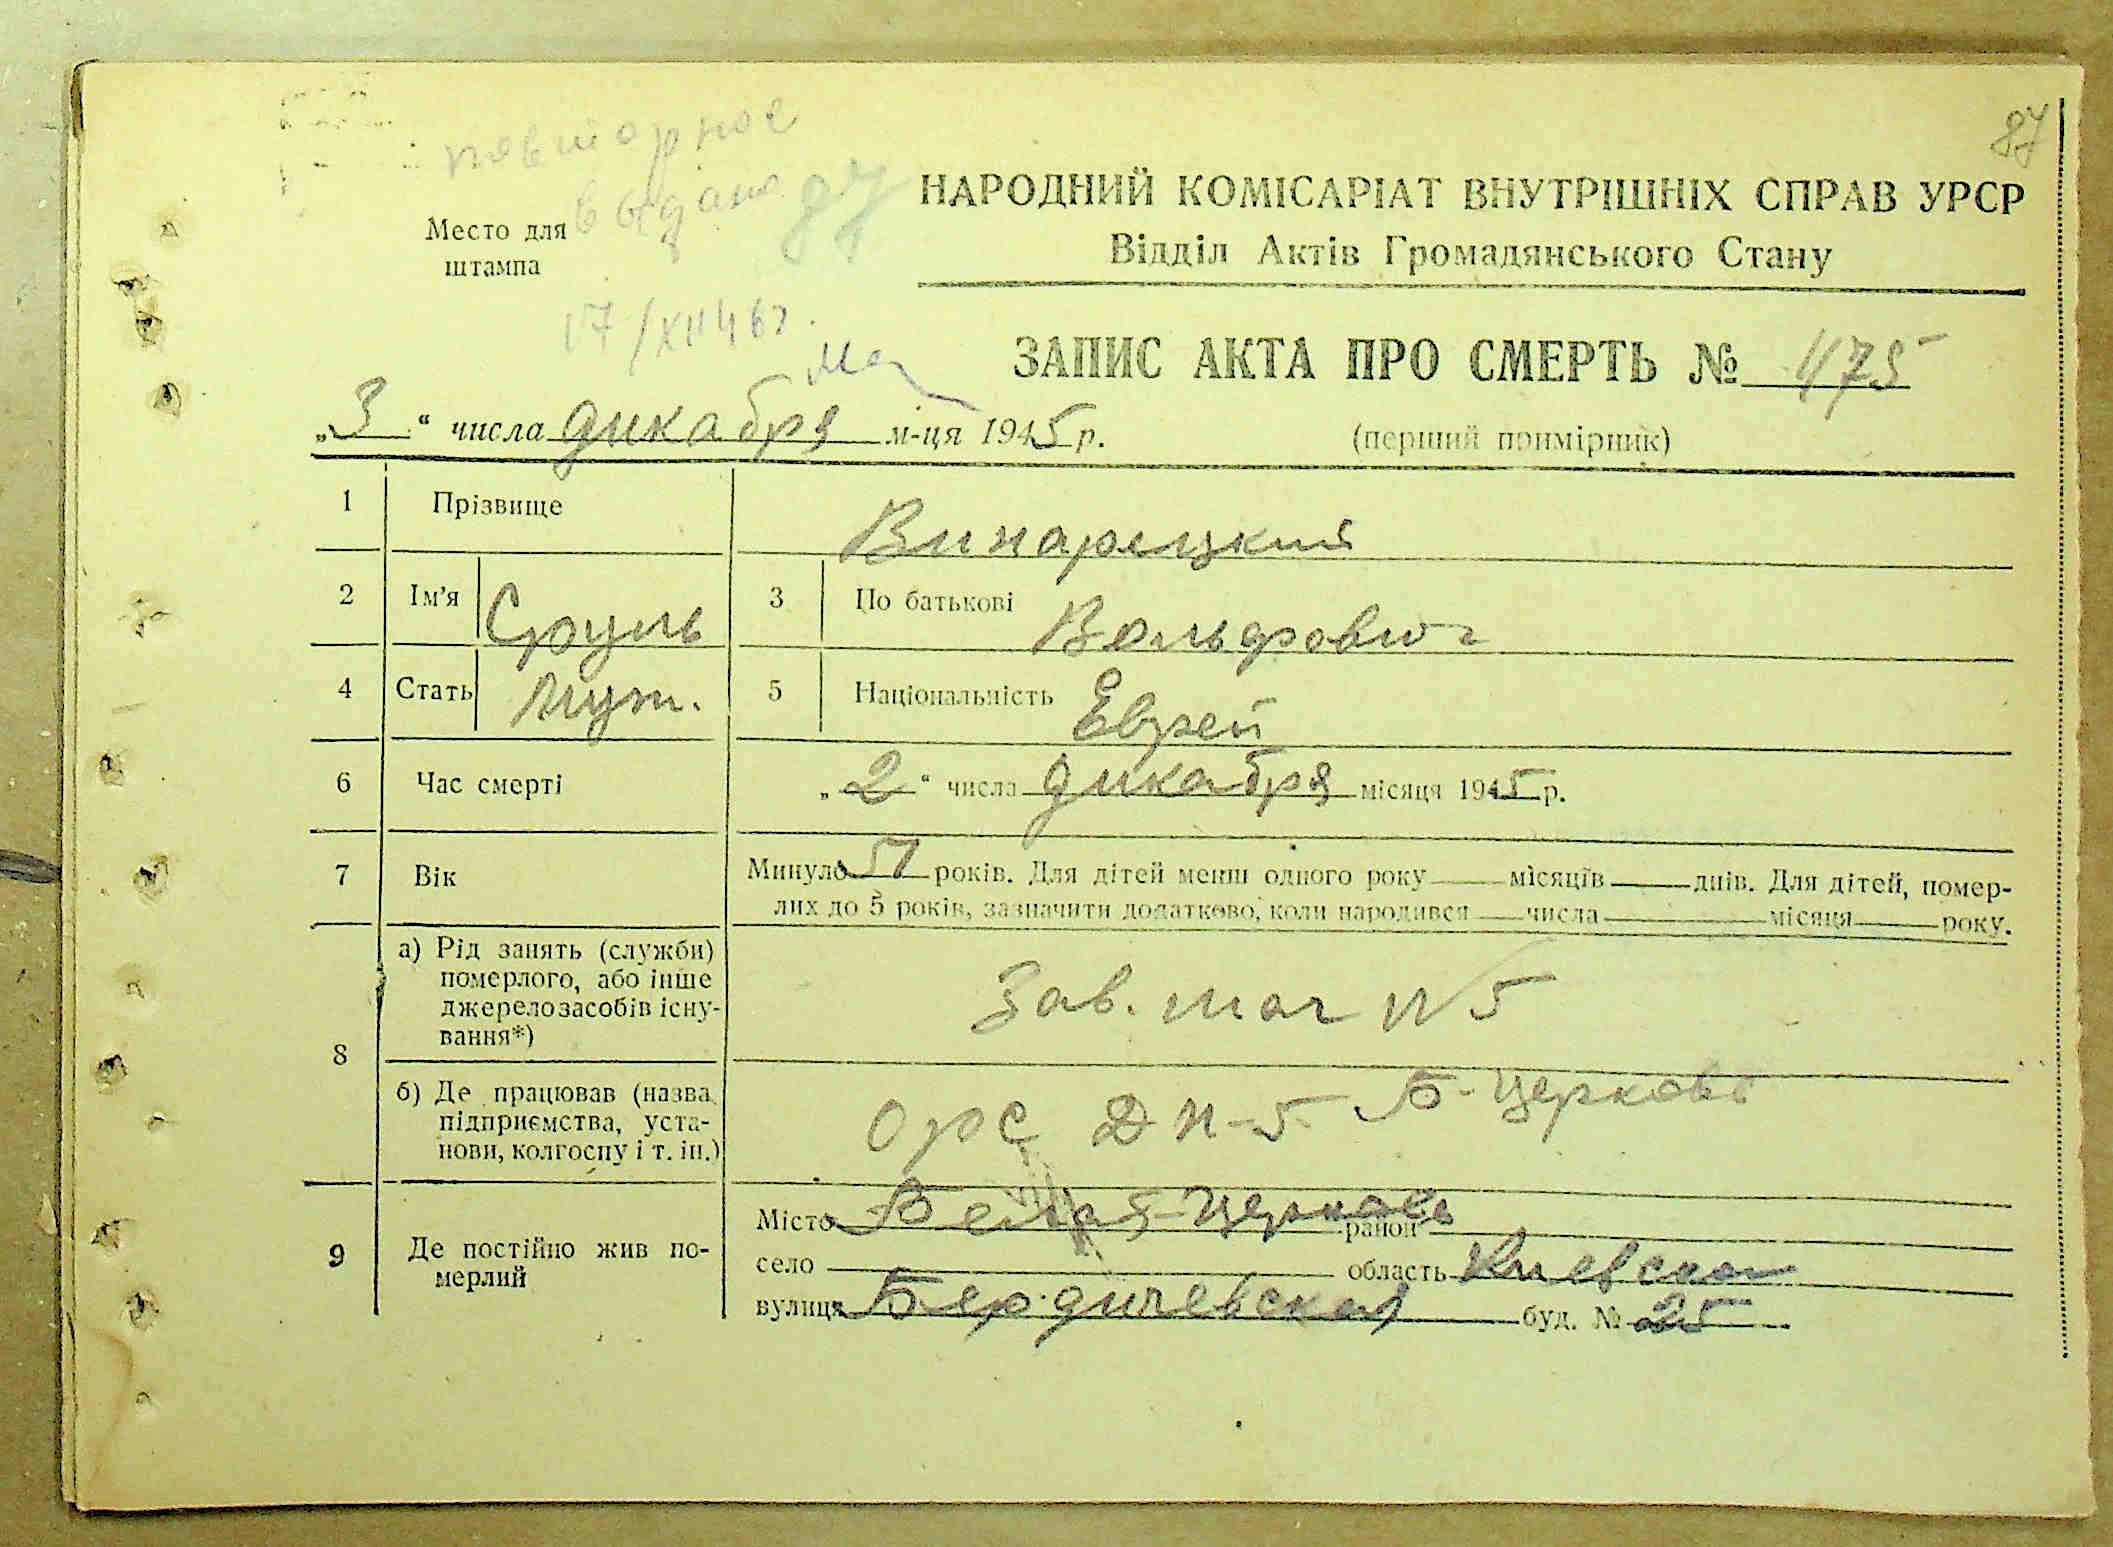 87
повторное
выдано
НАРОДНИЙ КОМІСАРІАТ ВНУТРІШНІХ СПРАВ УРСР
Відділ Актів Громадянського Стану
Место для
штампа
17/XII 46 г.
ЗАПИС АКТА ПРО СМЕРТЬ № 475
(перший примірник)
„3“ числа дикабря м-ця 1945 р.
1 Прізвище Винарецкий
2 Ім'я Сруль 3 По батькові Вольфович
4 Стать Муж. 5 Національність Еврей
6 Час смерті „2“ числа дикабря місяця 1945 р.
7 Вік Минуло 57 років. Для дітей менш одного року місяців днів. Для дітей, помер-
лих до 5 років, зазначити додатково, коли народився числа місяця року.
8 а) Рід занять (служби)
померлого, або інше
джерело засобів існу-
вання*)
Зав. маг №5
б) Де працював (назва
підприємства, уста-
нови, колгоспу і т. ін.)
Орс ДН-5 Б-Церковь
9 Де постійно жив по-
мерлий
Місто Белая-Церковь район
село область Киевская
вулиця Бердичевская буд. № 25